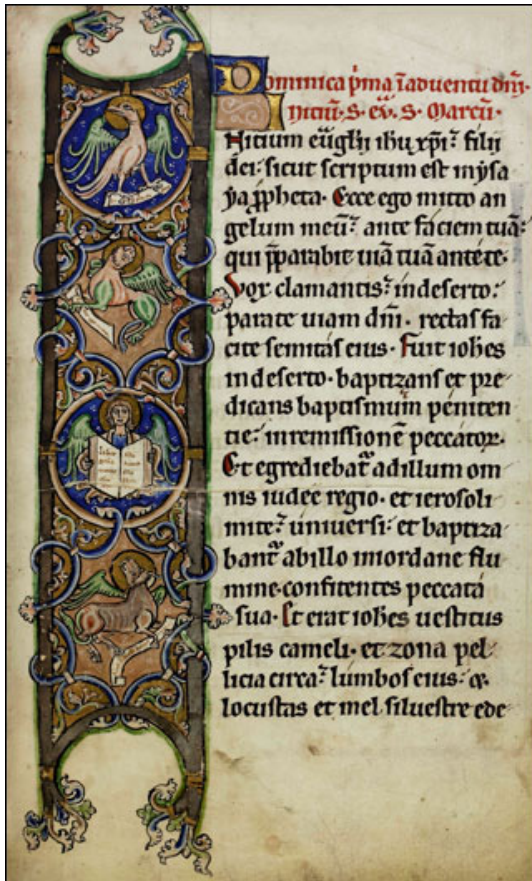 Dominica p̃ma ĩ aduentu dñi.
Initiũ. S. eũ. S. Marcũ.
Nitium eũglii ihu xp̃i: filii
dei: sicut scriptum est in ysa
ya p̃pheta. Ecce ego mitto an
gelum meũ: ante faciem tuã:
qui p̃parabit uiã tuã ante te.
Vox clamantis: in deserto:
parate uiam dñi. rectas fa
cite semitas eius. Fuit iohes
in deserto. baptizans et pre
dicans baptismum peniten
tie: in remissionẽ peccator.
Et egrediebat̃ ad illum om
nis iudee regio. et ierosoli
mite: uniuersi: et baptiza
bant̃ ab illo in iordane flu
mine. confitentes peccata
sua. Et erat iohes uestitus
pilis cameli. et zona pel
licia circa: lumbos eius: &
locustas et mel siluestre ede